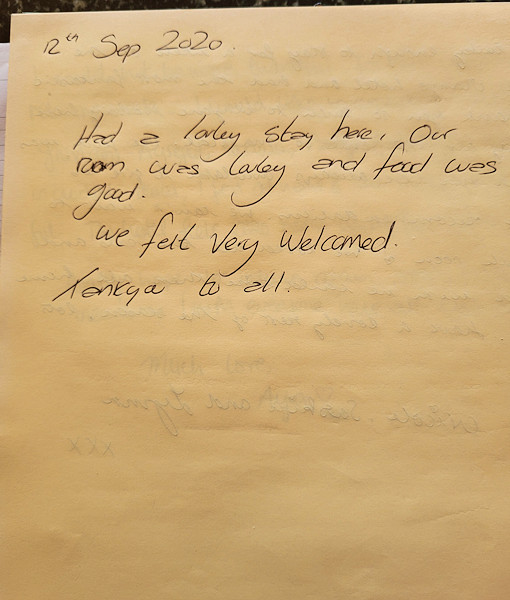 12th Sep 2020.
Had a lovley stay here. Our
room was lovley and food was
good.
we felt very welcomed.
Tankyou to all.